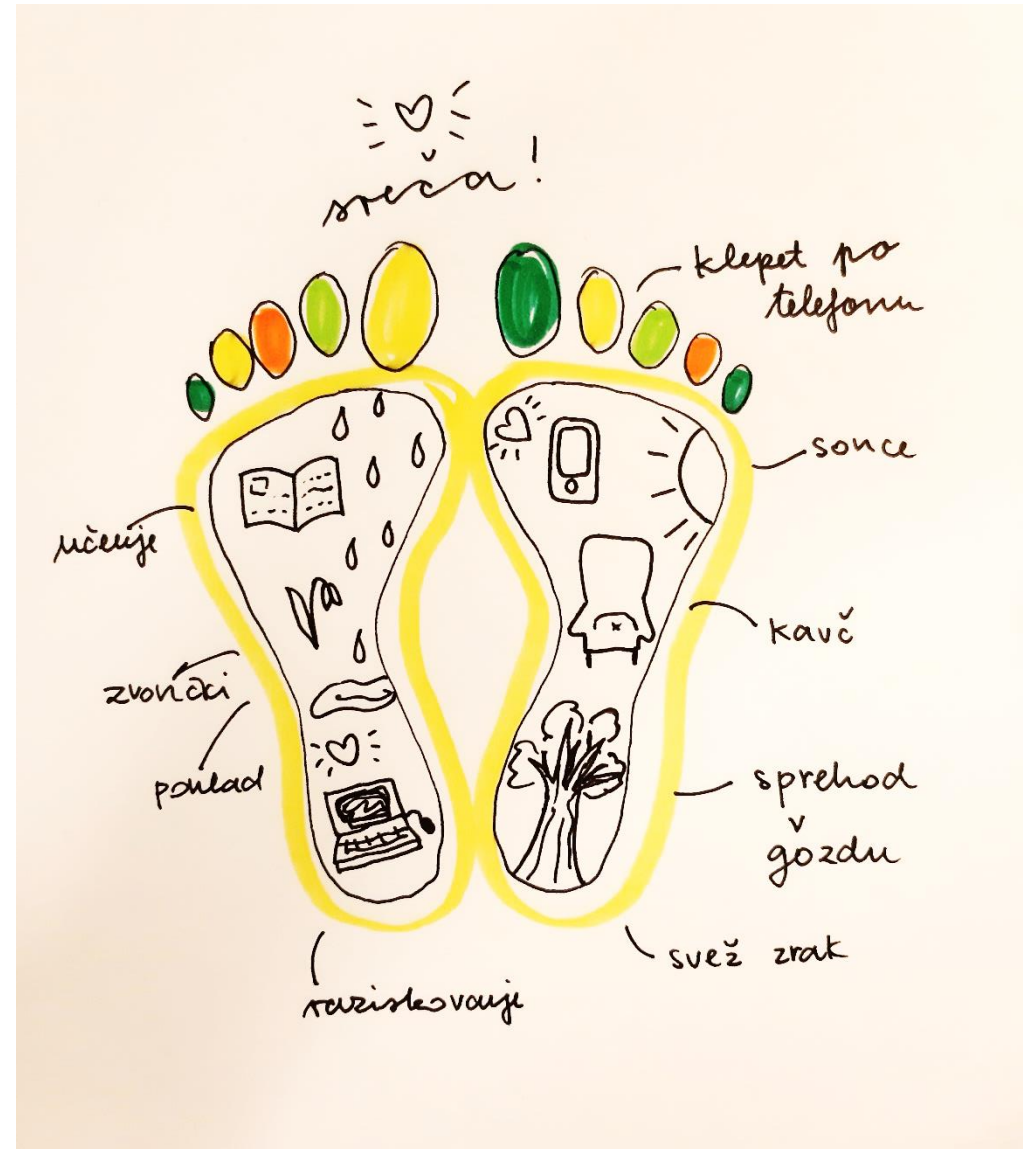 sreča!
klepet po
telefonu
sonce
učenje
kavč
zvončki
pomlad
sprehod
v
gozdu
svež zrak
raziskovanje